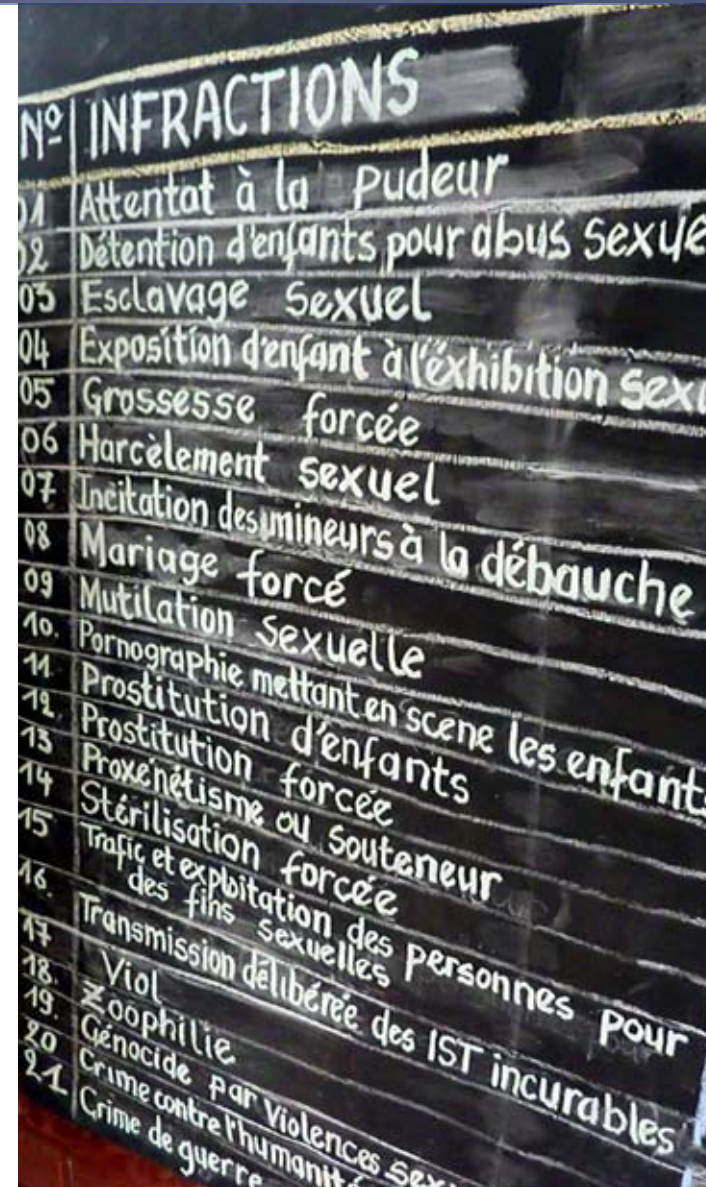 Nº INFRACTIONS
01 Attentat à la pudeur
02 Détention d'enfants pour abus sexue
03 Esclavage sexuel
04 Exposition d'enfant à l'éxhibition sexu
05 Grossesse forcée
06 Harcèlement sexuel
07 Incitation des mineurs à la débauche
08 Mariage forcé
09 Mutilation sexuelle
10. Pornographie mettant en scene les enfants
11. Prostitution d'enfants
12. Prostitution forcée
13 Proxenétisme ou souteneur
14 Stérilisation forcée
15 Trafic et exploitation des personnes pour
des fins sexuelles
16. Transmission délibérée des IST incurables
17 Viol
18. Zoophilie
19. Génocide par violences sexu
20 Crime contre l'humanité
21. Crime de guerre